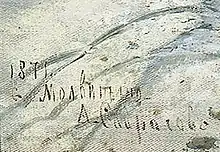 1871.
с. Молвитино
А. Саврасовъ